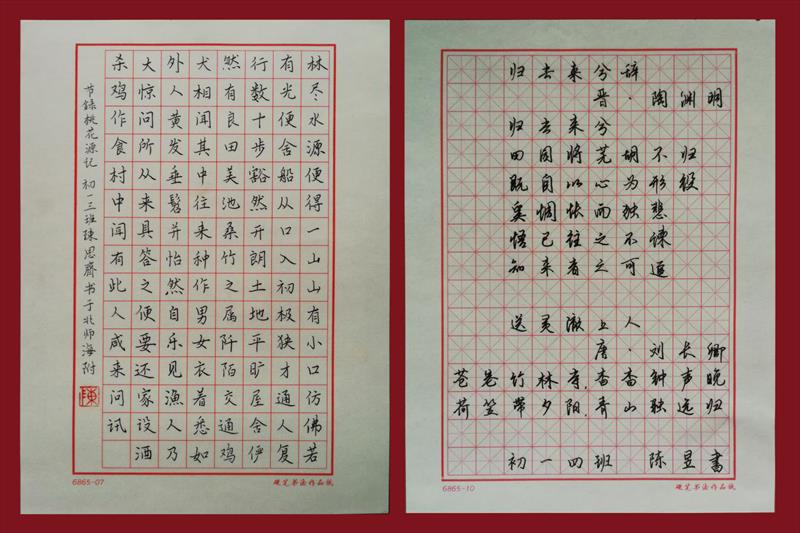 林尽水源便得一山山有小口仿佛若
有光便舍船从口入初极狭才通人复
行数十步豁然开朗土地平旷屋舍俨
然有良田美池桑竹之属阡陌交通鸡
犬相闻其中往来种作男女衣着悉如
外人黄发垂髫并怡然自乐见渔人乃
大惊问所从来具答之便要还家设酒
杀鸡作食村中闻有此人咸来问讯
节录桃花源记 初一三班陈思齐书于北师海附
陳
6865-07
硬笔书法作品纸
归去来兮辞
晋·陶渊明
归去来兮
田园将芜胡不归
既自以心为形役
奚惆怅而独悲
悟已往之不谏
知来者之可追
送灵澈上人
唐·刘长卿
苍苍竹林寺,杳杳钟声晚
荷笠带夕阳,青山独远归
初一四班 陈昱書
6865-10
硬笔书法作品纸